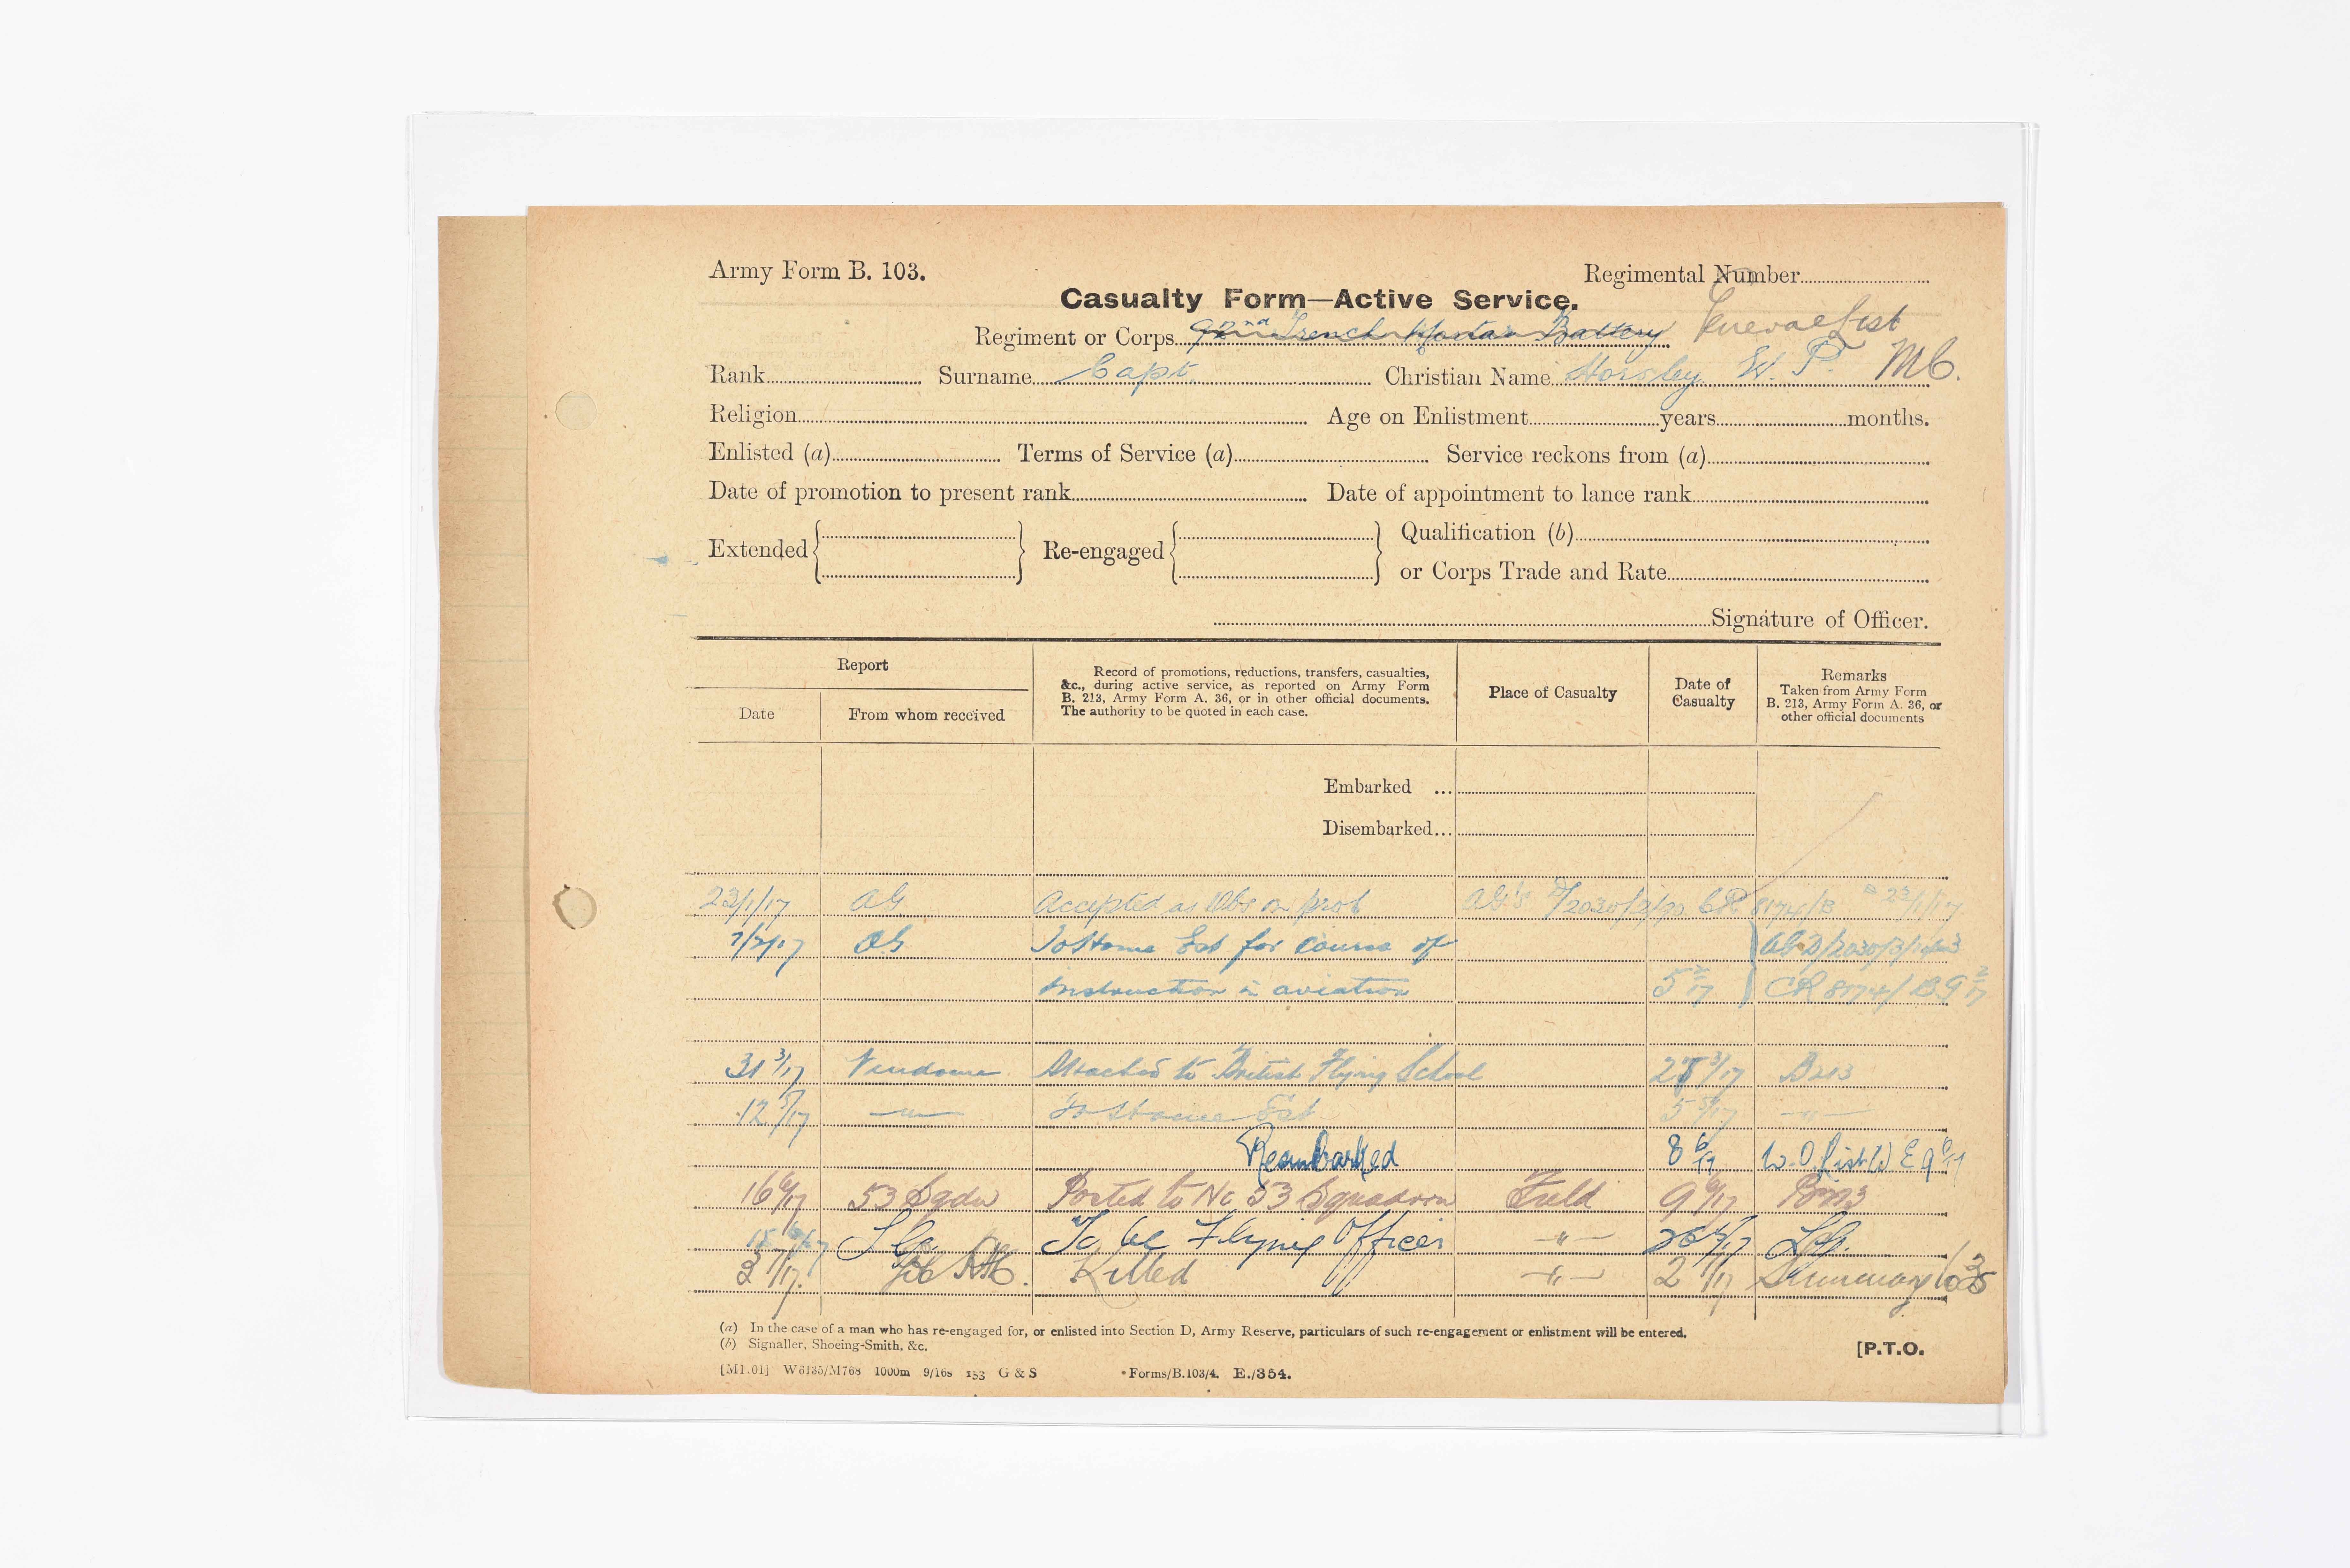 Army Form B. 103.
Regimental Number
Casualty Form—Active Service.
Regiment or Corps 92nd Trench Mortar Battery General List
Rank Surname Capt. Christian Name Horsley W. P. MC.
Religion Age on Enlistment years months.
Enlisted (a) Terms of Service (a) Service reckons from (a)
Date of promotion to present rank Date of appointment to lance rank
Extended Re-engaged Qualification (b)
or Corps Trade and Rate
Signature of Officer.
Report
Date From whom received
Record of promotions, reductions, transfers, casualties,
&c., during active service, as reported on Army Form
B. 213, Army Form A. 36, or in other official documents.
The authority to be quoted in each case.
Place of Casualty
Date of
Casualty
Remarks
Taken from Army Form
B. 213, Army Form A. 36, or
other official documents
Embarked ...
Disembarked...
23/1/17 AG Accepted as Obs on prob AG's CR 8174/B 23/1/17
7/2/17 AG To Home Est for course of
instruction in aviation 5 2/17 CR 8174/B 9 2/17
31 3/17 Vendome Attached to British Flying School 3/17 B213
12 5/17 —"— To Home Est 5 5/17 —"—
Reembarked 8 6/17 W.O. List
16 6/17 53 Sqdn Posted to No 53 Squadron Field 9 6/17 B213
To be Flying Officer —"— L.G.
3 7/17 Killed —"— 2 7/17 Summary
(a) In the case of a man who has re-engaged for, or enlisted into Section D, Army Reserve, particulars of such re-engagement or enlistment will be entered.
(b) Signaller, Shoeing-Smith, &c.
[P.T.O.
W6135/M768 1000m 9/16s 153 G & S Forms/B.103/4. E./354.